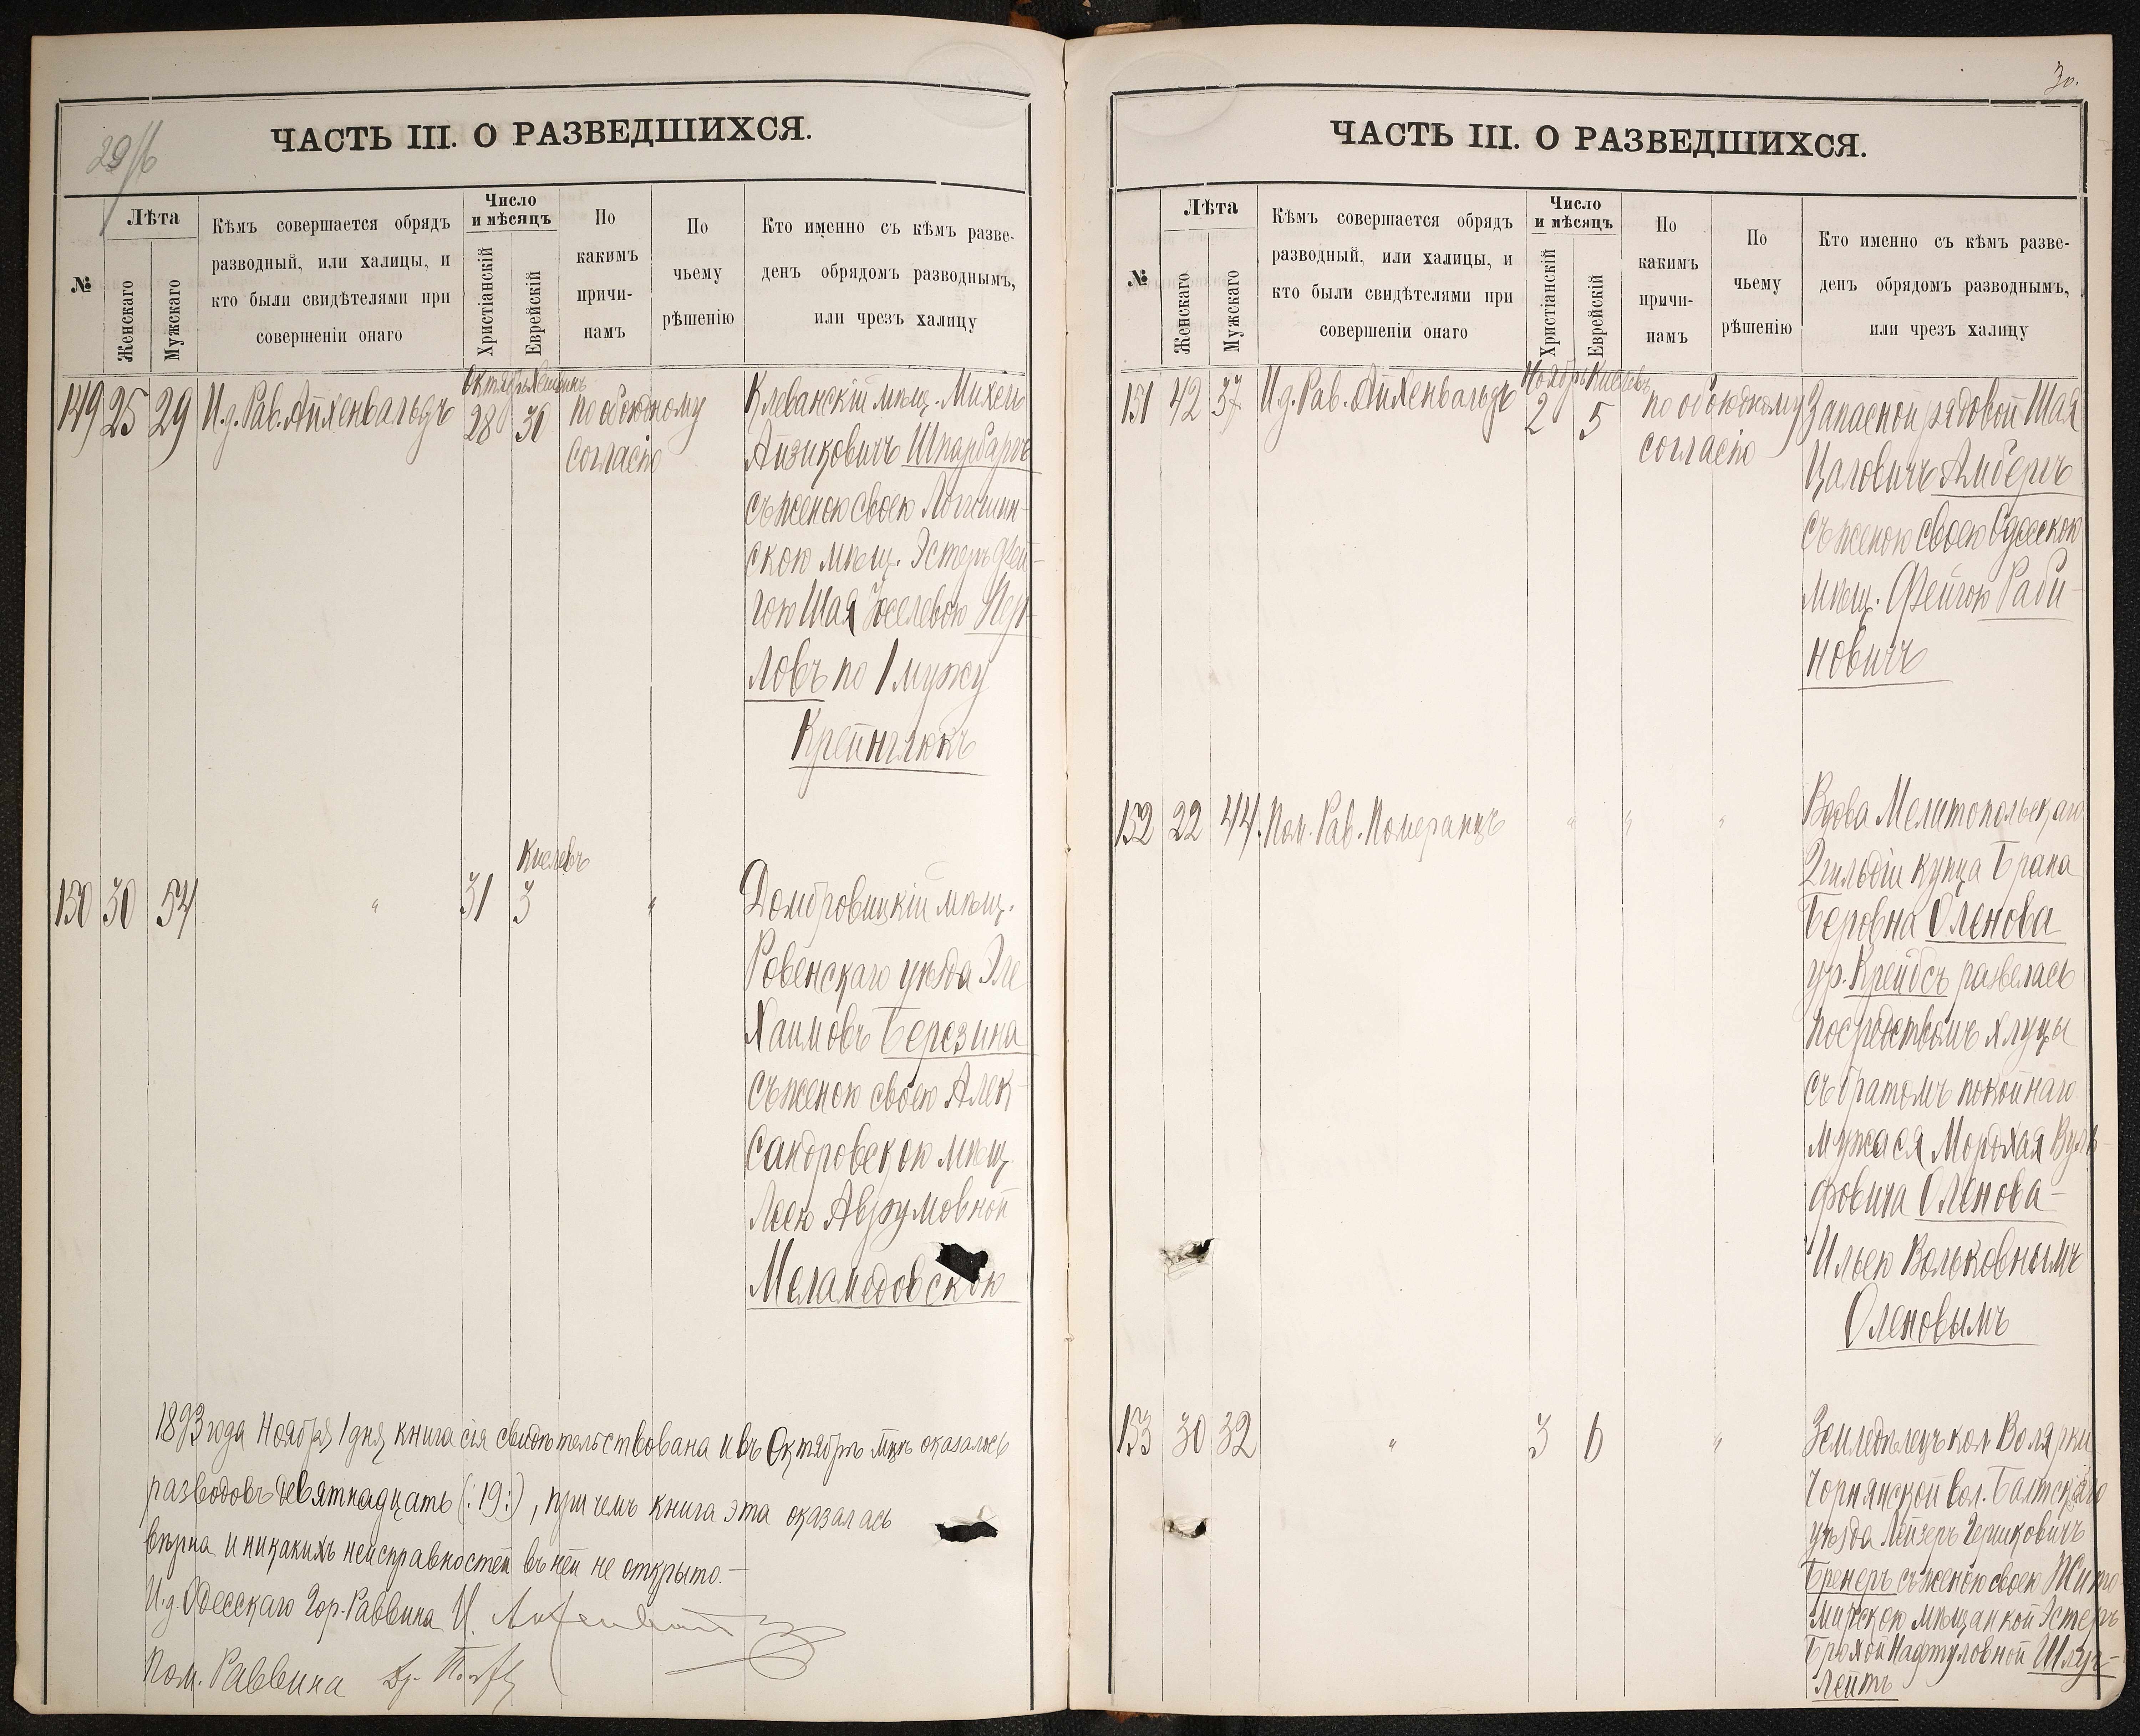 29/б
ЧАСТЬ III. О РАЗВЕДШИХСЯ.
№
Лѣта
Женскаго
Мужскаго
Кѣмъ совершается обрядъ
разводный, или халицы, и
кто были свидѣтелями при
совершеніи онаго
Число
и мѣсяцъ
Христіанскій
Еврейскій
По
какимъ
причи-
намъ
По
чьему
рѣшенію
Кто именно съ кѣмъ разве-
денъ обрядомъ разводнымъ,
или чрезъ халицу
149 25 29 И.д. Рав. Айхенвальдъ
Октябрь
28 30
по обоюдному
согласію
Клеванскій мѣщ. Михель
Айзиковичъ Шпарбаргъ
съ женою своею Логишин-
скою мѣщ. Эстеръ Фей-
гою Шая Іоселевою Пер-
ловъ по 1 мужу
Крейнглюкъ
Кислевъ
150 30 54 " 31 3 "
Домбровицкій мѣщ.
Ровенскаго уѣзда Эле
Хаимовъ Березина
съ женою своею Алек-
сандровскою мѣщ.
Леею Аврумовной
Меламедовскою
1893 года Ноября 1 дня книга сія свидѣтельствована и въ Октябрѣ мцѣ оказалось
разводовъ девятнадцать (:19:), при чемъ книга эта оказалась
вѣрна и никакихъ неисправностей въ ней не открыто.—
И.д. Одесскаго Гор. Раввина И.
Пом. Раввина
30.
ЧАСТЬ III. О РАЗВЕДШИХСЯ.
№
Лѣта
Женскаго
Мужскаго
Кѣмъ совершается обрядъ
разводный, или халицы, и
кто были свидѣтелями при
совершеніи онаго
Число
и мѣсяцъ
Христіанскій
Еврейскій
По
какимъ
причи-
намъ
По
чьему
рѣшенію
Кто именно съ кѣмъ разве-
денъ обрядомъ разводнымъ,
или чрезъ халицу
151 42 37 И.д. Рав. Айхенвальдъ
Ноябрь Кислевъ
2 5
по обоюдному
согласію
Запасной рядовой Шая
Цаговичъ Амбергъ
съ женою своею Одесскою
мѣщ. Фейгою Раби-
новичъ
152 22 44. Пом. Рав. Померанцъ " " "
Вдова Мелитопольскаго
2 гильдіи купца Брана
Беровна Оленова
ур. Крейдсъ развелась
посредствомъ хлуцы
съ братомъ покойнаго
мужа ея Мордхая Вуль-
фовича Оленова—
Ильею Вольковнымъ
Оленовымъ
153 30 32 " 3 6 "
Земледѣлецъ кол. Волярки
Чорнянской вол. Балтскаго
уѣзда Лейзеръ Гершковичъ
Бренеръ съ женою своею Жито
мирскою мѣщанкой Эстеръ
Брохой Нафтуловной Шлуг-
лейтъ